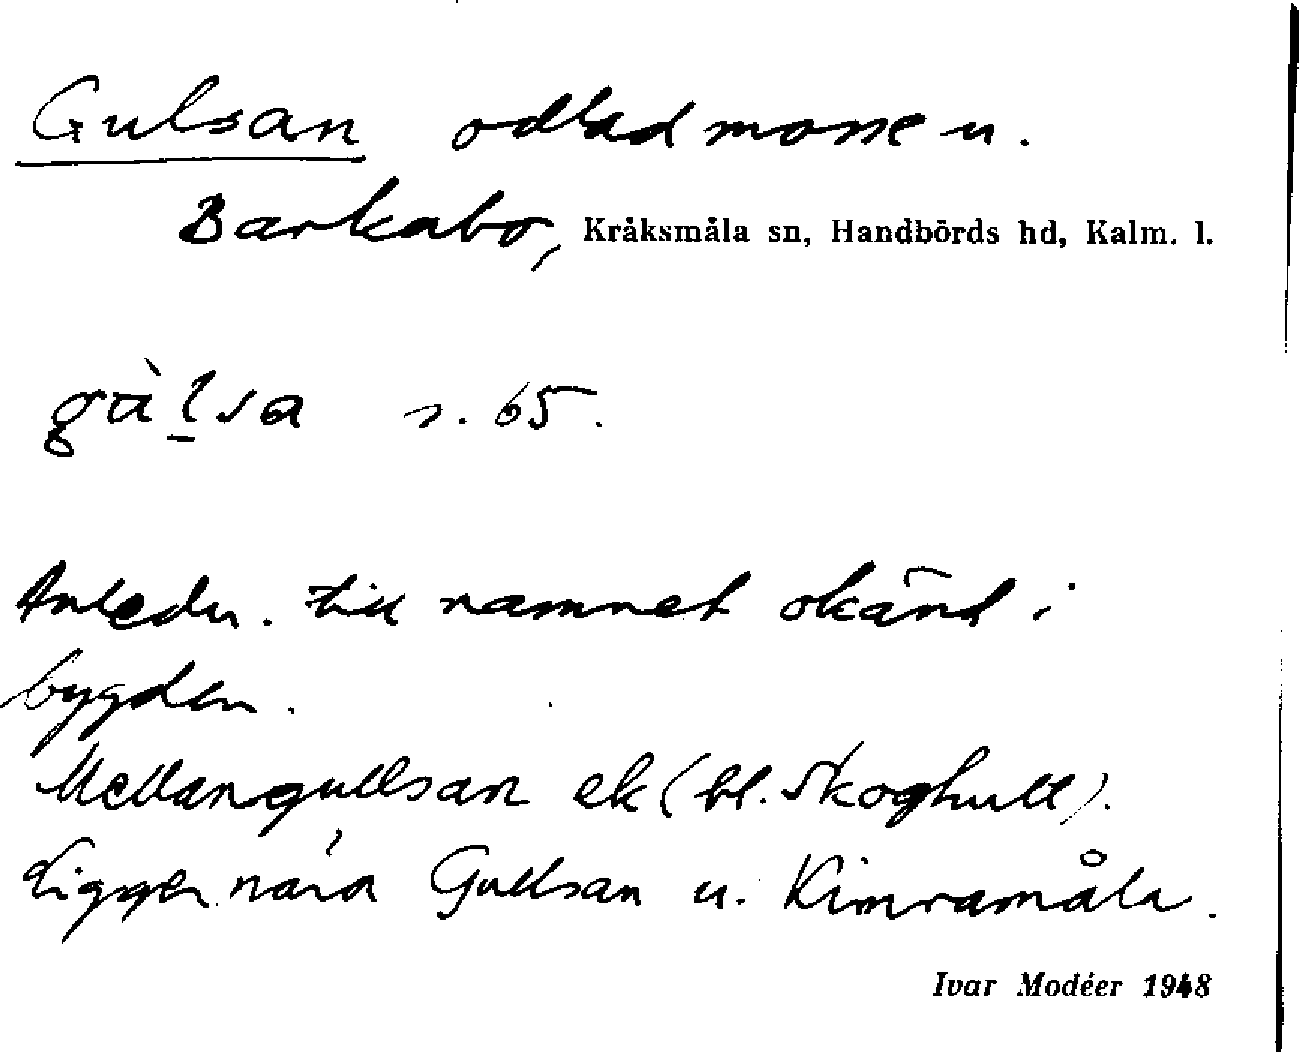 Gulsan odlad mosse u.
Barkabo, Kråksmåla sn, Handbörds hd, Kalm. l.
gù̀lsa s. 65.
Anledn. till namnet okänd i
bygden.
Mellangullsan ek (bl. Skoghult).
Ligger nära Gullsan u. Kimramåla.
Ivar Modéer 1948